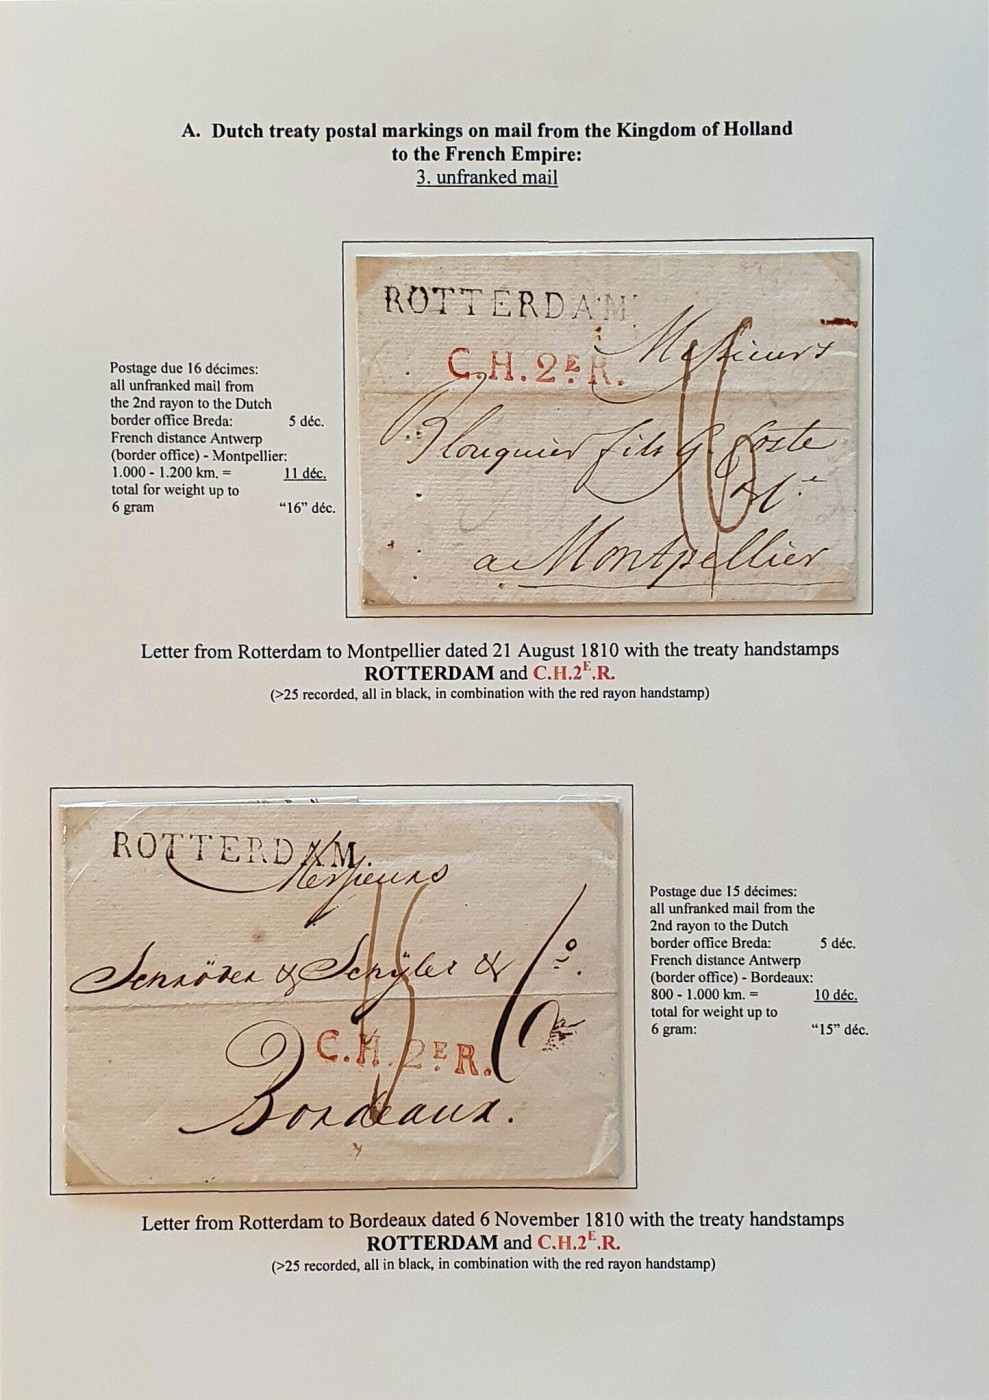 A. Dutch treaty postal markings on mail from the Kingdom of Holland
to the French Empire:
3. unfranked mail
Postage due 16 décimes:
all unfranked mail from
the 2nd rayon to the Dutch
border office Breda: 5 déc.
French distance Antwerp
(border office) - Montpellier:
1.000 - 1.200 km. = 11 déc.
total for weight up to
6 gram “16” déc.
ROTTERDAM
Messieurs
C.H.2E.R.
Plouquier fils & Coste
16
a Montpellier
Letter from Rotterdam to Montpellier dated 21 August 1810 with the treaty handstamps
ROTTERDAM and C.H.2E.R.
(>25 recorded, all in black, in combination with the red rayon handstamp)
ROTTERDAM.
Messieurs
Schröder & Schÿler & Co.
15
C.H.2E.R.
Bordeaux.
Postage due 15 décimes:
all unfranked mail from the
2nd rayon to the Dutch
border office Breda: 5 déc.
French distance Antwerp
(border office) - Bordeaux:
800 - 1.000 km. = 10 déc.
total for weight up to
6 gram: “15” déc.
Letter from Rotterdam to Bordeaux dated 6 November 1810 with the treaty handstamps
ROTTERDAM and C.H.2E.R.
(>25 recorded, all in black, in combination with the red rayon handstamp)